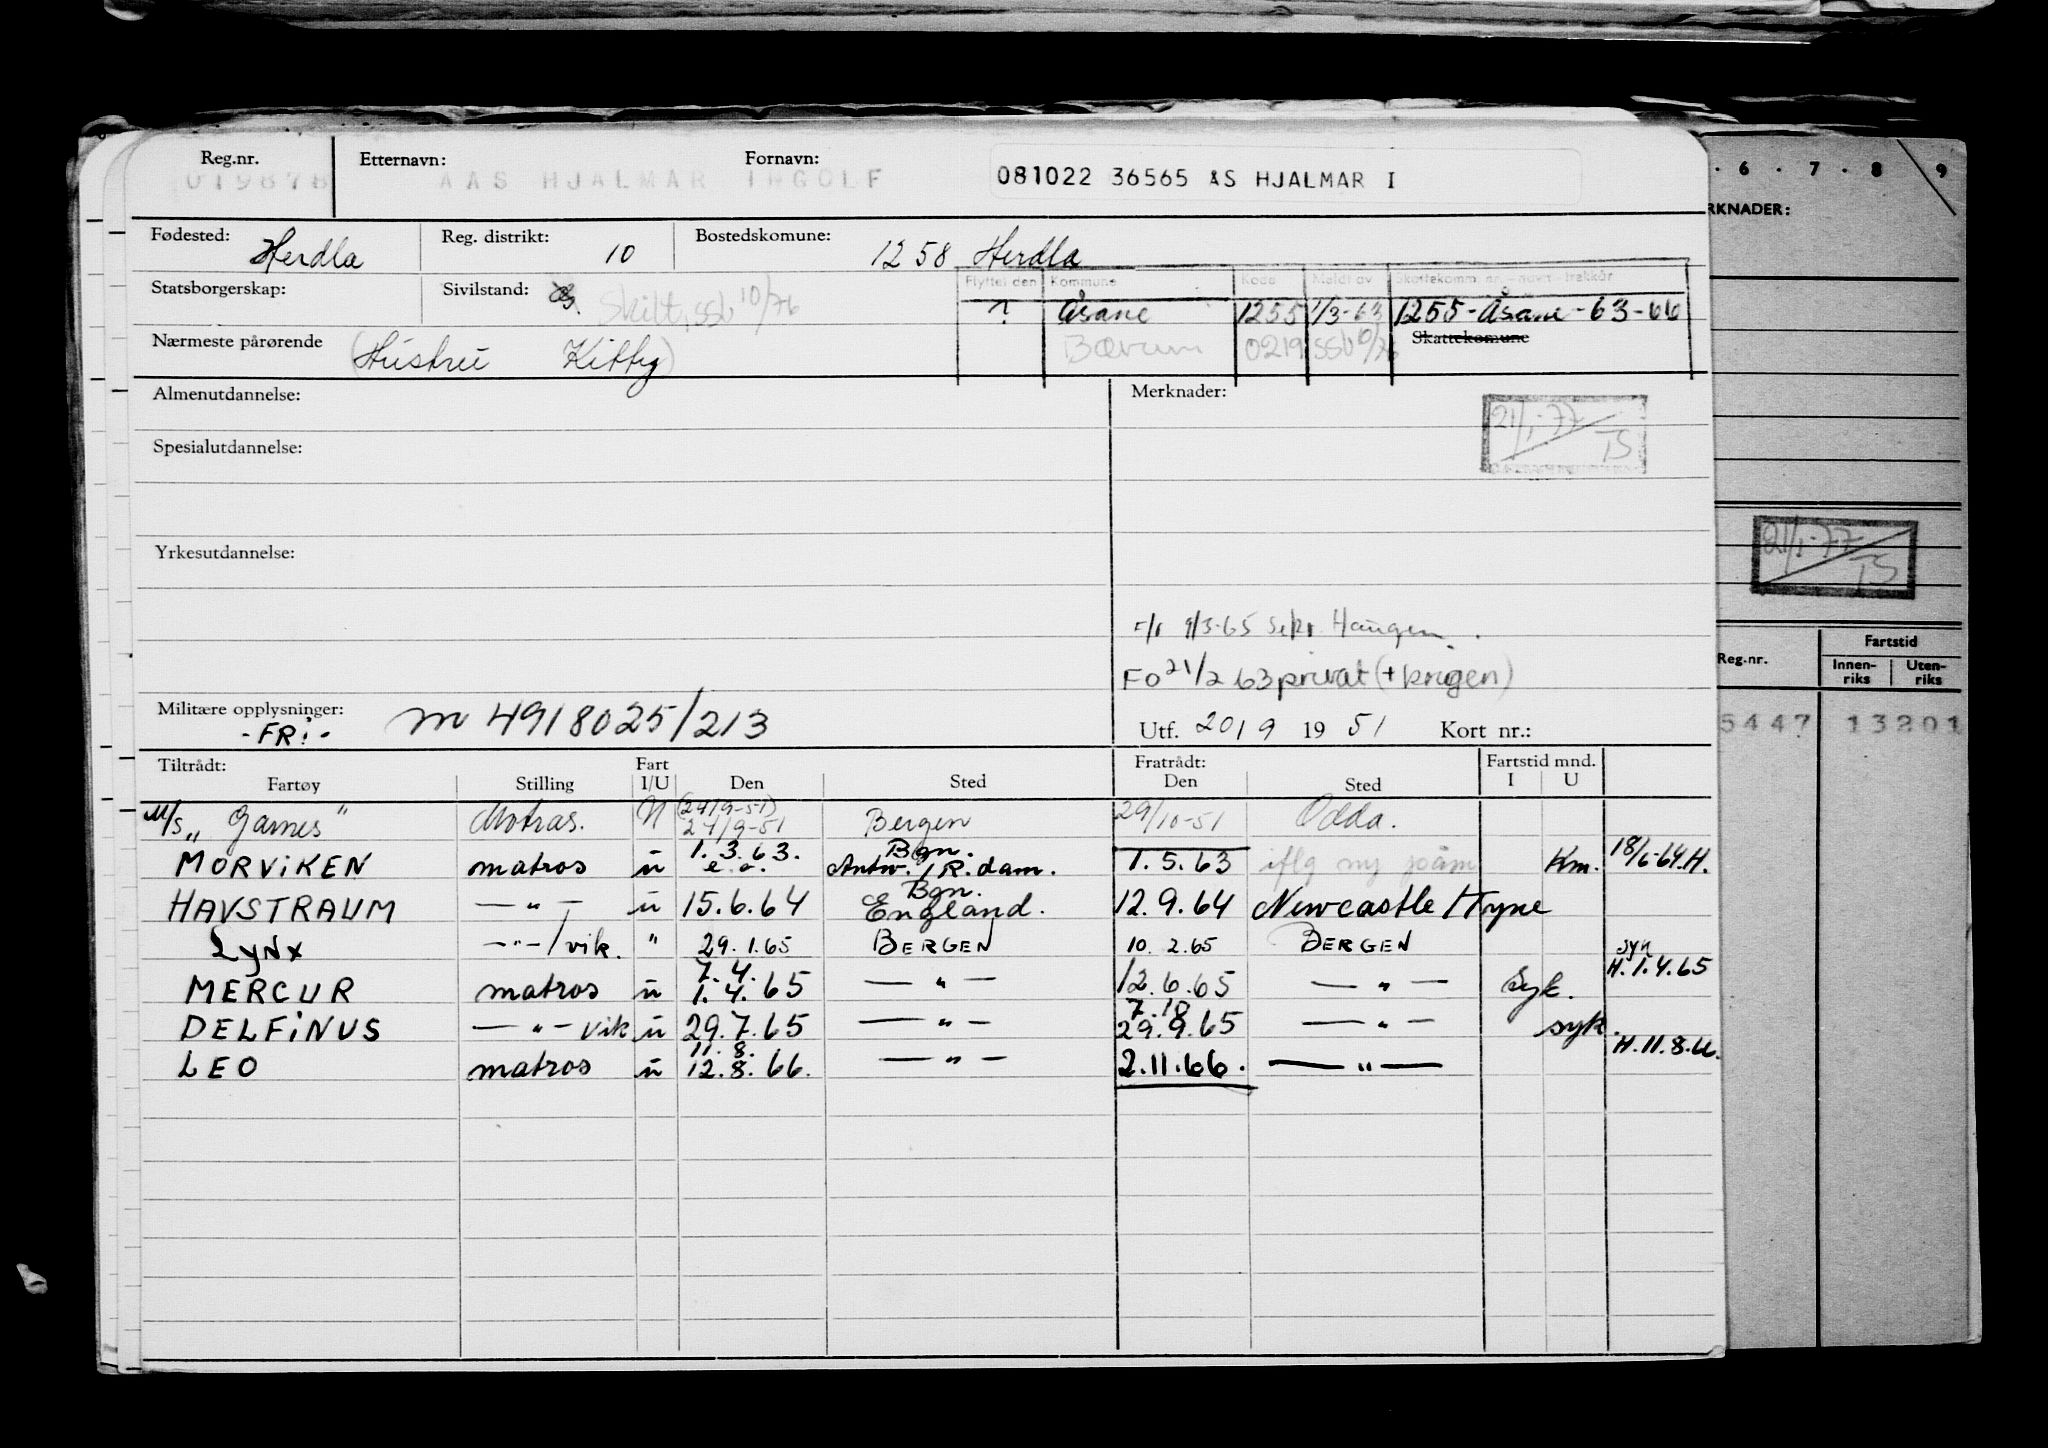 Reg.nr. Etternavn: Fornavn:
019878 AAS HJALMAR INGOLF 081022 36565 AS HJALMAR I
Fødested: Herdla Reg. distrikt: 10 Bostedskomune: 1258 Herdla
Statsborgerskap: Sivilstand: Skilt, SSb 10/76
Flyttet den Kommune Kode Meldt av Skattekomm. nr. - navn - trekkår
? Åsane 1255 1/3-63 1255-Åsane-63-66
Bærum 0219 SSb 10/76 Skattekomune
Nærmeste pårørende (Hustru Kitty)
Almenutdannelse: Merknader:
21/1-77 TS
Spesialutdannelse:
Yrkesutdannelse:
F/r 9/3-65 Sekr. Haugen.
FO 21/2 63 privat (+ krigen)
Militære opplysninger: -FRi- m 4918025/213
Utf. 20/9 19 51 Kort nr.:
Tiltrådt: Fart Fratrådt: Fartstid mnd.
Fartøy Stilling I/U Den Sted Den Sted I U
M/S „Garnes" Matras. N (24/9-51) 24/9-51 Bergen 29/10-51 Odda.
MORViKEN matros u 1.3.63. e.o. Bgn. Antw./R.dam. 1.5.63 iflg ny Km. 18/6-64.H.
HAVSTRAUM — " — u 15.6.64 Bgn. England. 12.9.64 Newcastle/Tyne
LyNx — " — / vik. " 29.1.65 BERGEN 10.2.65 BERGEN
MERCUR matros u 7.4. 1.4.65 — " — 12.6.65 — " — Syk. syk H.1.4.65
DELFiNUS — " — vik u 29.7.65 — " — 7.18 29.9.65 — " — syk.
LEO matros u 11.8. 12.8.66. — " — 2.11.66. — " — H.11.8.66.
. 6 . 7 . 8 9
RKNADER:
21/1-77 TS
Reg.nr. Fartstid
Innen-riks Uten-riks
5447 13201